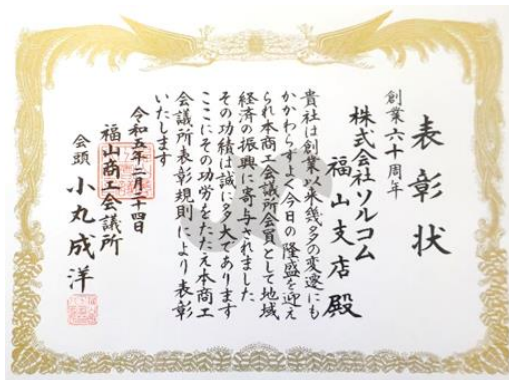 表彰状
創業六十周年
株式会社ソルコム
福山支店殿
貴社は創業以来幾多の変遷にも
かかわらずよく今日の隆盛を迎え
られ本商工会議所会員として地域
経済の振興に寄与されました
その功績は誠に多大であります
ここにその功労をたたえ本商工
会議所表彰規則により表彰
いたします
令和五年二月二十四日
福山商工会議所
会頭 小丸成洋